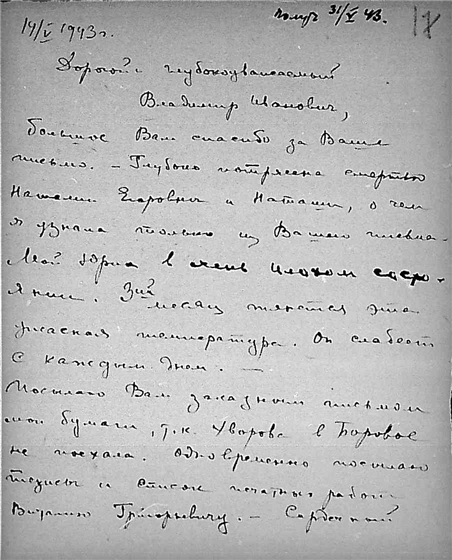 получ 31/V 43.
17
14/V 1943 г.
Дорогой и глубокоуважаемый
Владимир Иванович,
большое Вам спасибо за Ваше
письмо. – Глубоко потрясена смертью
Наталии Егоровны и Наташи, о чем
я узнала только из Вашего письма.
Мой Юрма в очень плохом состо-
янии. 3ий месяц тянется эта
ужасная температура. Он слабеет
с каждым днем. –
Посылаю Вам заказным письмом
мои бумаги, т.к. Уварова в Боровое
не поехала. Одновременно посылаю
тезисы и список печатных работ
Виталию Григорьевичу. – Сердечный